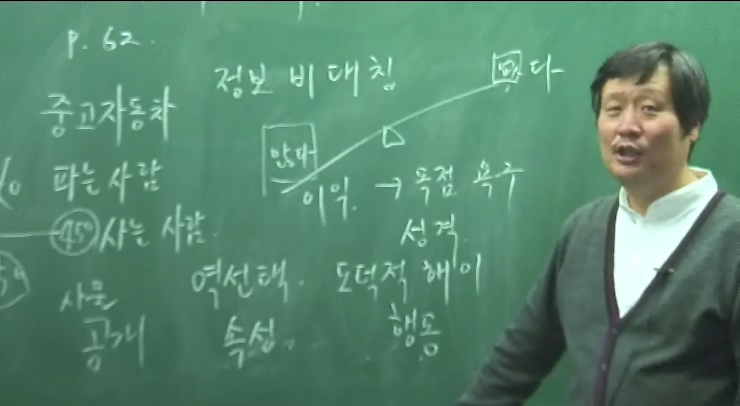 p. 62.
정보 비대칭
다
중고자동차
많다
파는 사람
이익 → 독점 욕구
450 사는 사람.
성격
역선택. 도덕적 해이
사물
공개 속성. 행동